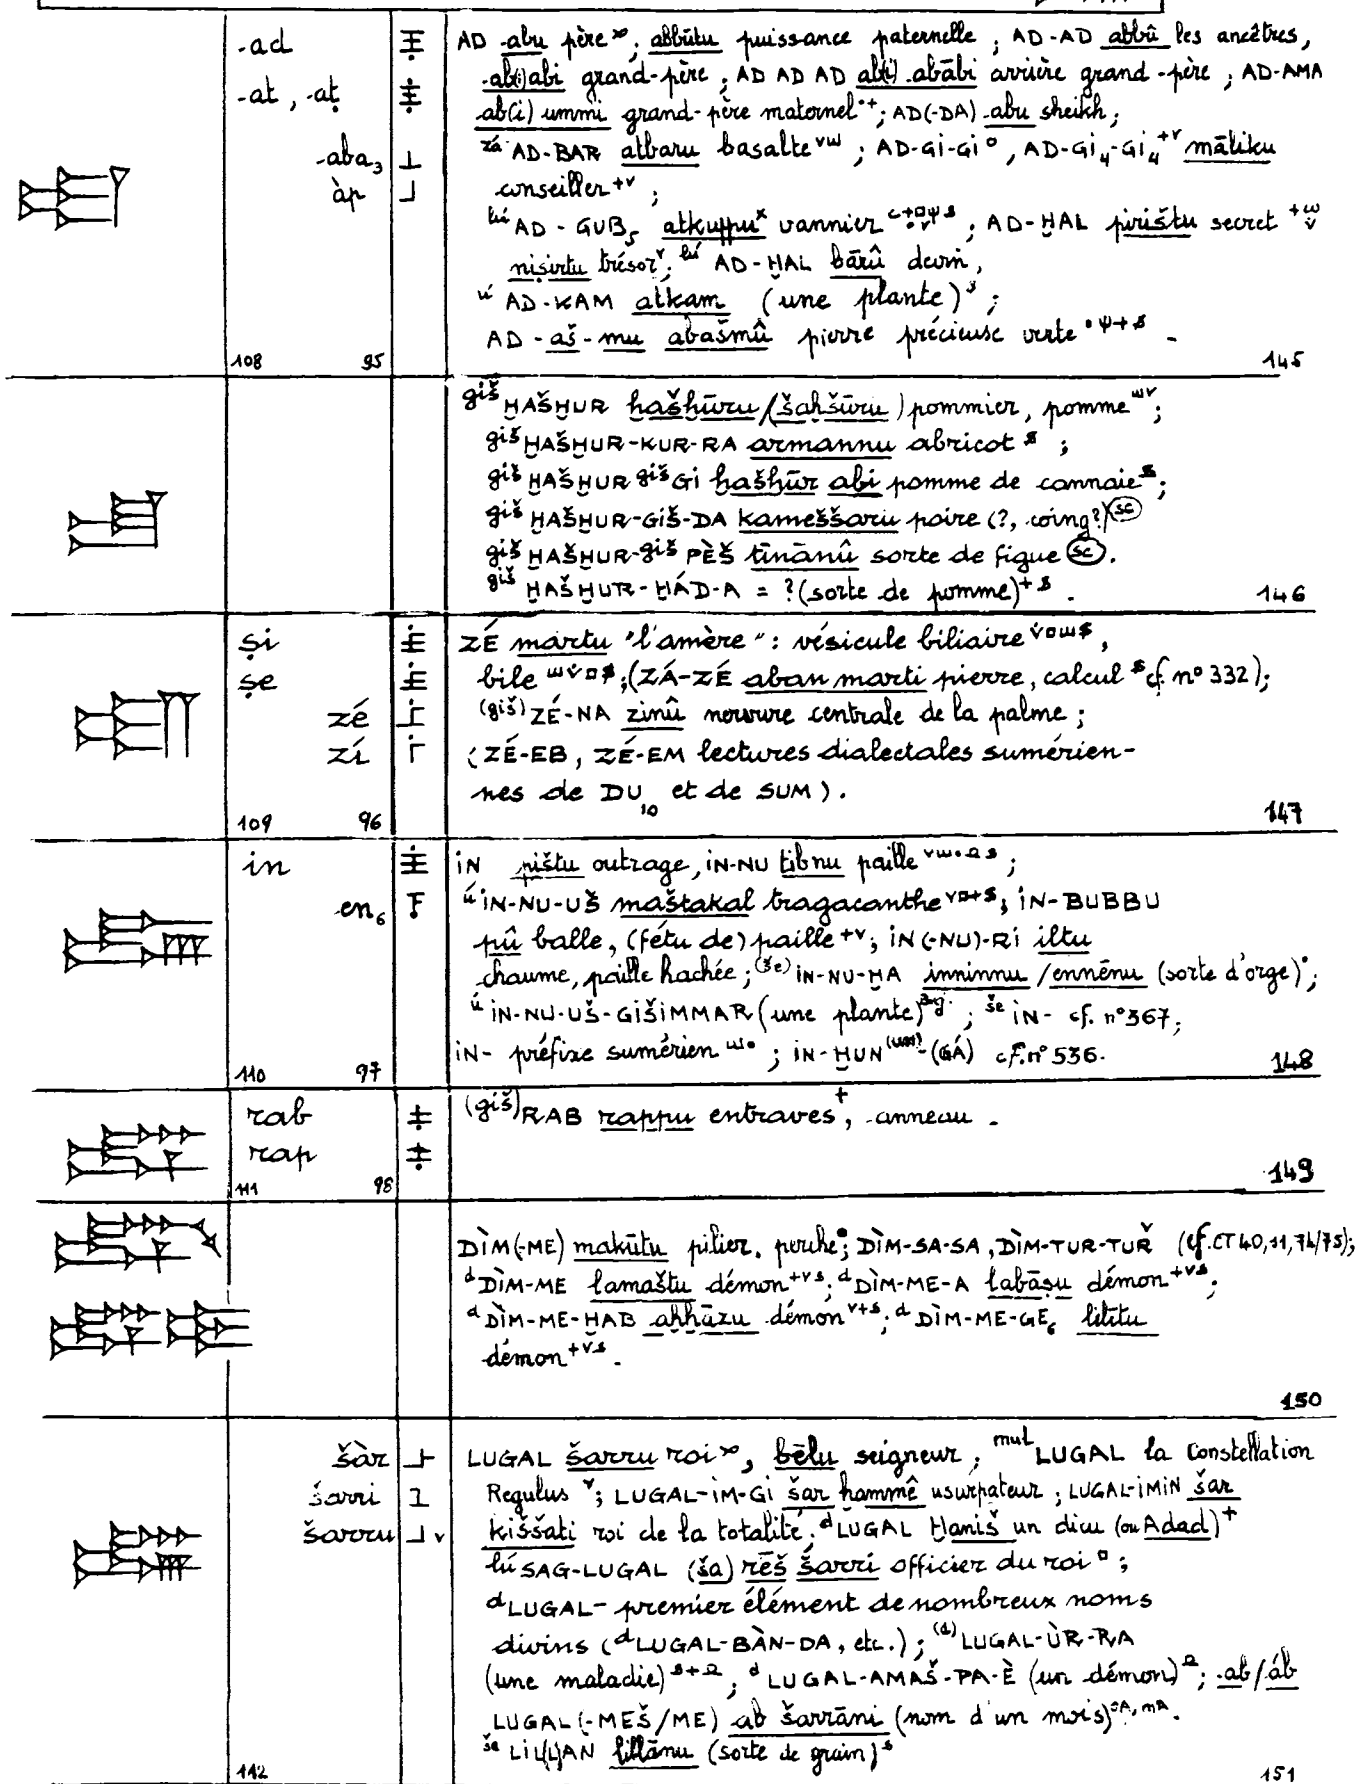 -ad AD abu père, abbūtu puissance paternelle ; AD-AD abbû les ancêtres,
ab(i)abi grand-père ; AD AD AD ab(i) abābi arrière grand-père ; AD-AMA
-at, -aṭ ab(i) ummi grand-père maternel ; AD(-DA) abu sheikh ;
-aba₃ zá AD-BAR atbaru basalte ; AD-Gi-Gi, AD-Gi₄-Gi₄ māliku
àp conseiller ;
lú AD-GUB₅ atkuppu vannier ; AD-ḪAL pirištu secret
niṣirtu trésor ; lú AD-ḪAL bārû devin,
ú AD-KAM atkam (une plante) ;
AD-aš-mu abašmû pierre précieuse verte.
108 95 145
giš ḪAŠḪUR ḫašḫūru/(šaḫšūru) pommier, pomme ;
giš ḪAŠḪUR-KUR-RA armannu abricot ;
giš ḪAŠḪUR giš Gi ḫašḫūr abi pomme de cannaie ;
giš ḪAŠḪUR-GiŠ-DA kameššaru poire (?, coing?) (sc)
giš ḪAŠḪUR-giš PÈŠ tīnānû sorte de figue (sc).
giš ḪAŠḪUR-ḪÁD-A = ? (sorte de pomme). 146
ṣi ZÉ martu "l'amère" : vésicule biliaire,
ṣe bile ; (ZÁ-ZÉ aban marti pierre, calcul cf. n° 332) ;
zé (giš) ZÉ-NA zinû nervure centrale de la palme ;
zí (ZÉ-EB, ZÉ-EM lectures dialectales sumérien-
nes de DU₁₀ et de SUM).
109 96 147
in iN pištu outrage, iN-NU tibnu paille ;
en₆ ú iN-NU-UŠ maštakal tragacanthe ; iN-BUBBU
pû balle, (fétu de) paille ; iN(-NU)-Ri iltu
chaume, paille hachée ; (še) iN-NU-ḪA inninnu / ennēnu (sorte d'orge) ;
ú iN-NU-UŠ-GiŠiMMAR (une plante) ; še iN- cf. n° 367 ;
iN- préfixe sumérien ; iN-ḪUN (GÁ) cf. n° 536.
110 97 148
rab (giš) RAB rappu entraves, anneau.
rap
111 98 149
DÌM(-ME) makūtu pilier, perche ; DÌM-SA-SA, DÌM-TUR-TUR (cf. CT 40, 11, 74/75) ;
d DÌM-ME lamaštu démon ; d DÌM-ME-A labāṣu démon ;
d DÌM-ME-ḪAB aḫḫāzu démon ; d DÌM-ME-GE₆ lilītu
démon.
150
šàr LUGAL šarru roi, bēlu seigneur ; mul LUGAL la constellation
šarri Regulus ; LUGAL-iM-Gi šar ḫammê usurpateur ; LUGAL-iMiN šar
šarru kiššati roi de la totalité, d LUGAL Ḫaniš un dieu (ou Adad)
lú SAG-LUGAL (ša) rēš šarri officier du roi ;
d LUGAL- premier élément de nombreux noms
divins (d LUGAL-BÀN-DA, etc.) ; (d) LUGAL-ÙR-RA
(une maladie), d LUGAL-AMAŠ-PA-È (un démon) ; ab/áb
LUGAL(-MEŠ/ME) ab šarrāni (nom d'un mois).
še LiL(L)AN lillānu (sorte de grain)
112 151